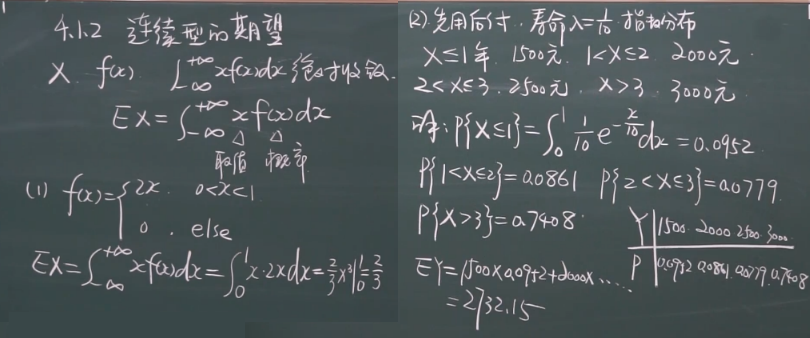 4.1.2 连续型的期望
X f(x) ∫_{-∞}^{+∞} xf(x)dx 绝对收敛.
EX=∫_{-∞}^{+∞} x f(x)dx
△ △
取值 概率
(1) f(x)={2x. 0<x<1
0. else
EX=∫_{-∞}^{+∞} xf(x)dx=∫_0^1 x·2xdx=2/3 x³|_0^1=2/3
(2). 先用后付. 寿命 λ=1/10 指数分布
X≤1年 1500元. 1<X≤2 2000元
2<X≤3. 2500元. X>3. 3000元.
解: P{X≤1}=∫_0^1 1/10 e^{-x/10}dx=0.0952
P{1<X≤2}=0.0861 P{2<X≤3}=0.0779
P{X>3}=0.7408
Y 1500. 2000 2500. 3000
P 0.0952 0.0861. 0.0779. 0.7408
EY=1500×0.0952+2000×……
=2732.15